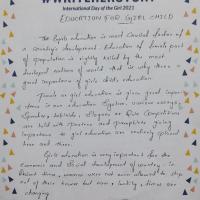 #WRITEHERSTORY
International Day of the Girl 2021
EDUCATION FOR GIRL CHILD
The Girl's education is most Crucial factor of
a country's development. Education of female part
of population is rightly killed by the most
developed nation of world that is why there a
great importance of girls child education.
Female or girl education is given good
is our education System, various essays,
Speeches, debates, slogans or Quiz Competitions
are held with and giving
importance to girl education are
here and there.
Girls education is very important for the
Economic and Social development of country. In
Ancient time, women were not even allowed to step
out of their house but now, luckily, times are
changing.